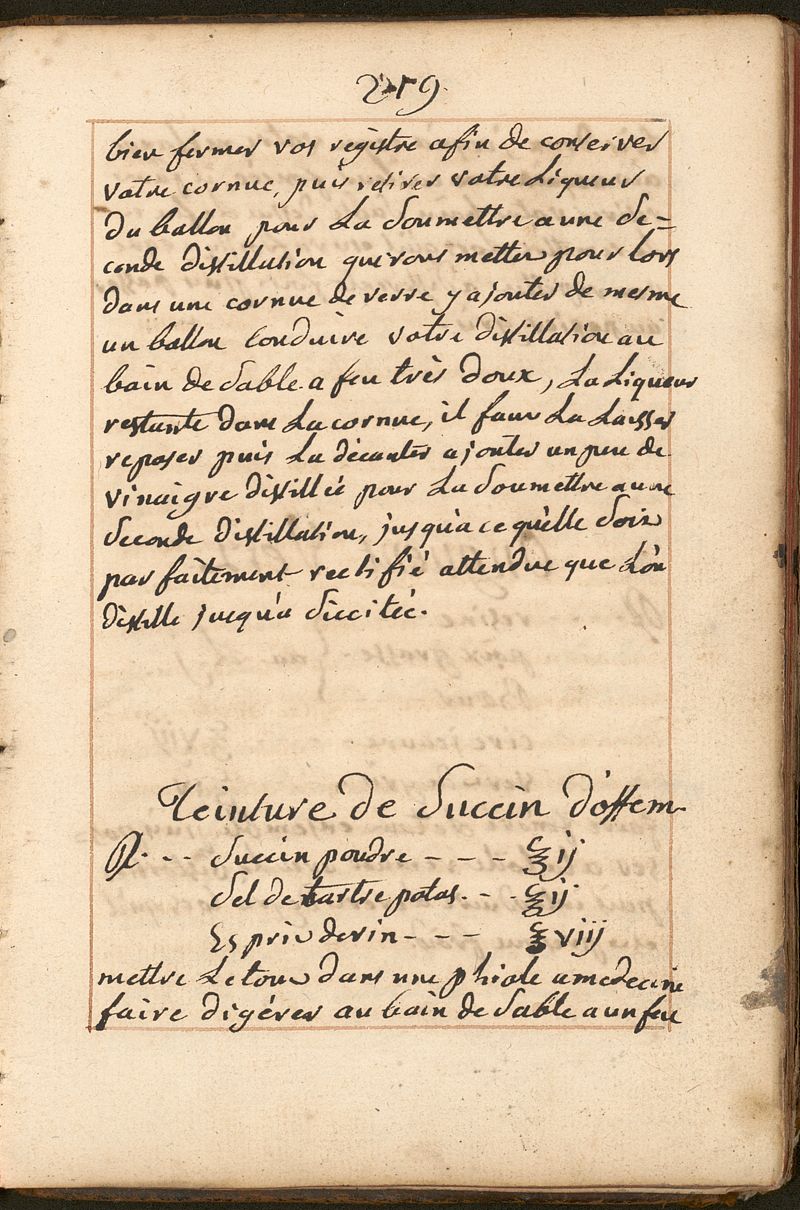 219
bien fermer vos régistre afin de conserver
votre cornue, puis retirer votre Liqueur
du ballon pour La Soumettre a une Se=
conde distillation que vous metter pour lors
dans une cornue de verre y ajouter de mesme
un ballon Conduire votre distillation au
bain de Sable a feu très doux, La Liqueur
restante dans La cornue, il faut La Laisser
reposer puis La décanter ajouter un peu de
vinaigre distillée pour La Soumettre a une
Seconde distillation, jusqu'a ce qu'elle Soit
parfaitement rectifié attendue que L'on
distille jusqu'a Siccitée.
Teinture de Succin d'offem
℞. - - Succin poudre - - - ℥ ij
Sel de tartre potas. - - ℥ ij
Esprit de vin - - - ℥ viij
mettre Le tout dans une phiole a medecine
faire digérer au bain de Sable a un feu